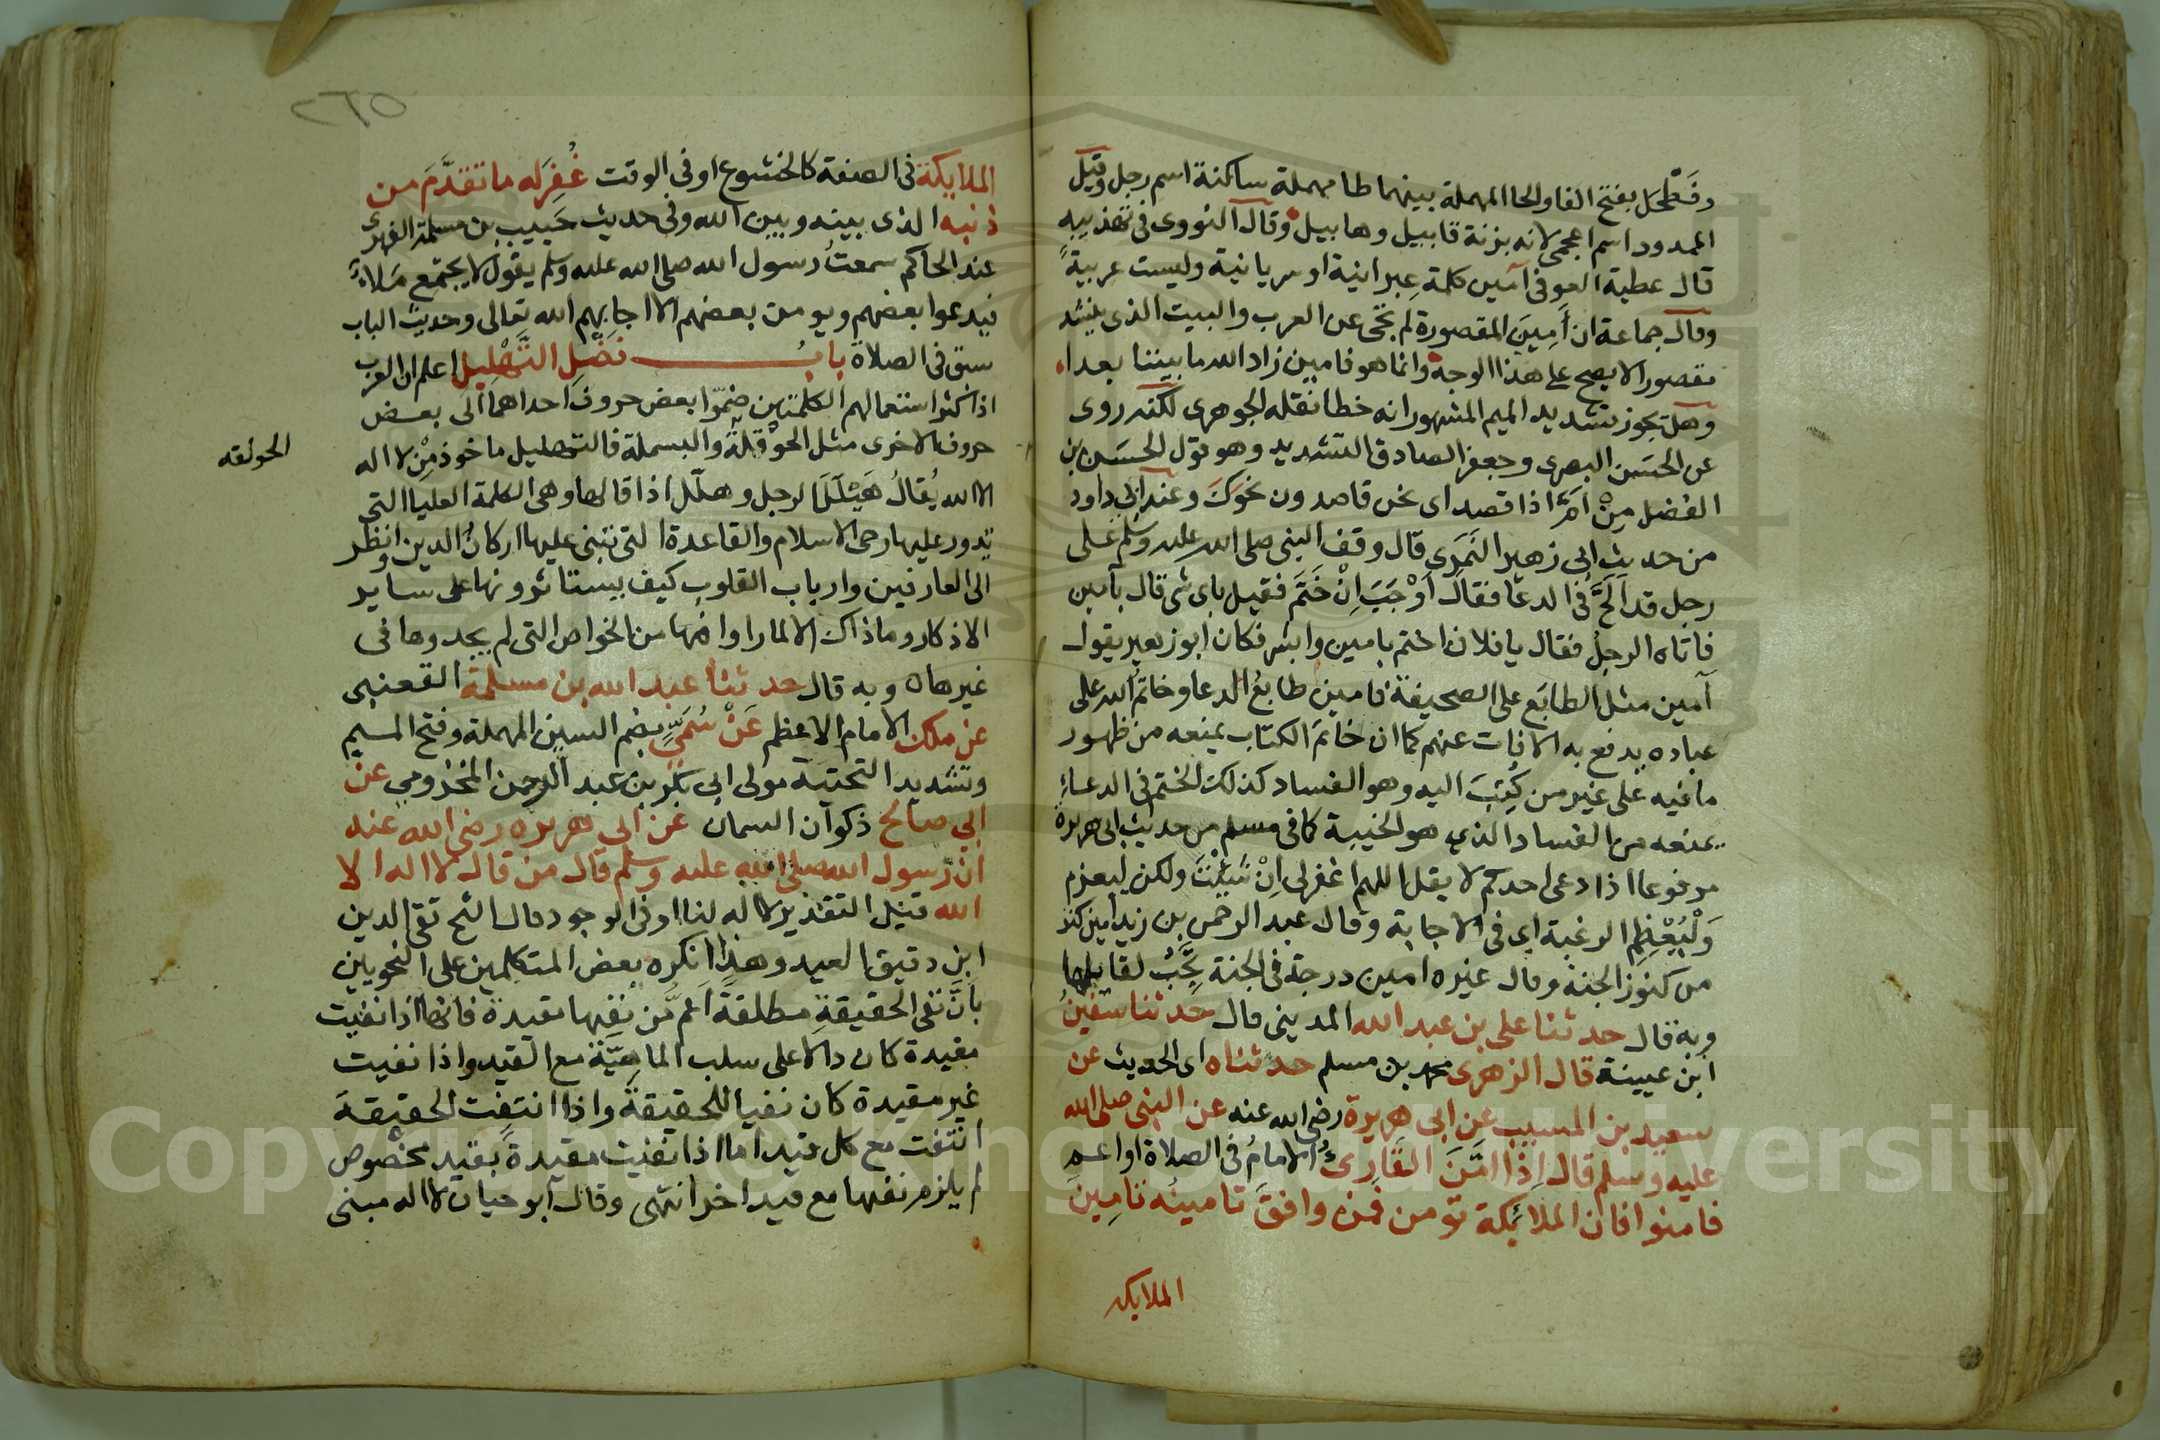 وفَطْحَل بفتح الفا والحا المهملة بينهما طا مهملة ساكنة اسم رجل وقيل
الممدود اسم اعجمى لانه بزنة قابيل وهابيل وقال النووى فى تهذيبه
قال عطية العوفى آمين كلمة عِبرانية او سريانية وليست عربيةً
وقال جماعة ان أَمِينَ المقصورة لم تجى عن العرب والبيت الذى ينشد
مقصورا لا يصح على هذا الوجه وانما هو فامين زاد الله ما بيننا بعدا
وهل تجوز تشديد الميم المشهور انه خطا نقله الجوهرى لكنه روى
عن الحسَن البصرى وجعفر الصادق التشديد وهو قول الحسَين بن
الفضل مِنْ اَمَّ اذا قصد اى نحن قاصدون نحوَكَ وعند ابى داود
من حديث ابى زهير النمَرى قال وقف النبى صلى الله عليه وسلم على
رجل قد اَلَحَّ فى الدعا فقال اَوْجَبَ اِنْ خَتَمَ فقيل باى شى قال بآمين
فاتاه الرجلُ فقال يا فلان اختم بامين وابشر فكان ابو زهير يقول
آمين مثل الطابَع على الصحيفة فامين طابعُ الدعا وخاتم الله على
عباده يدفع به الافات عنهم كما ان خاتَم الكتاب يمنعه من ظهور
ما فيه على غير من كُتِبَ اليه وهو الفساد كذلك الختم فى الدعاءِ
يمنعه من الفساد الذى هو الخيبة كما فى مسلم من حديث ابى هريرة
مرفوعا اذا دعى احدكم لا يقل اللهم اغفر لى اِنْ شئْتَ ولكن ليعزم
وَلْيُعْظِمِ الرغبة اى فى الاجابة وقال عبد الرحمن بن زيد امين كنز
من كنوز الجنة وقال غيره امين درجة فى الجنة تجَبُ لقايلها
وبه قال حدثنا على بن عبد الله المدينى قال حدثنا سفينُ
ابن عيينة قال الزهرى محمد بن مسلم حدثناه اى الحديث عن
سعيد بن المسيب عن ابى هريرة رضى الله عنه عن النبى صلى الله
عليه وسلم قال اِذا امَّنَ القَارِىُٔ الامامُ فى الصلاة او اعم
فامنوا فان الملائكة تومن فمن وافقَ تامينُه تامِينَ
الملايكه
٢٦٥
الملايكة فى الصفة كالخشوع او فى الوقت غُفِرَله ما تقدَّمَ من
ذنبه الذى بينه وبين الله وفى حديث حَبيب بن مسلمة الفهرى
عند الحاكم سمعتُ رسول الله صلى الله عليه وسلم يقول لا يجتمع مَلاءٌ
فيدعوا بعضهم ويومن بعضهم الا اجابهم الله تعالى وحديث الباب
سبق فى الصلاة بابُ فضلِ التَّهْلِيلِ اعلم ان العرب
اذا كثر استعمالهم الكلمتين ضمّوا بعض حروف احداهما الى بعض
حروف الاخرى مثل الحَوْقلة والبسملة فالتهليل ماخوذ مِنْ لا اله
الا الله يُقالُ هَيْلَلَ الرجل وهلّل اذا قالها وهى الكلمة العليا التى
تدور عليها رحى الاسلام والقاعدة التى تنبنى عليها اركان الدين وانظر
الى العارفين وارباب القلوب كيف يستاثرونها على ساير
الاذكار وما ذاك الا لما راوا فيها من الخواص التى لم يجدوها فى
غيرها وبه قال حدثنا عبد الله بن مسلمة القعنبى
عن ملك الامام الاعظم عَنْ سُمَيٍّ بضم السين المهملة وفتح الميم
وتشديد التحتية مولى ابى بكر بن عبد الرحمن المخزومى عن
ابى صالح ذكوان السمان عن ابى هريره رضى الله عنه
ان رسول الله صلى الله عليه وسلم قال من قال لا اله الا
الله قيل التقدير لا اله لنا او فى الوجود وقال الشيخ تقى الدين
ابن دقيق العيد وهذا انكره بعض المتكلمين على النحويين
بان نفى الحقيقةِ مطلقةً اعم من نفيها مقيدة فانها اذا نفيت
مقيدة كان دالا على سلب الماهيّة مع القيد واذا نفيت
غير مقيدة كان نفيا للحقيقة واذا انتفت الحقيقة
انتفت مع كل قيد اما اذا نفيت مقيدة بقيد مخصوص
لم يلزم نفيها مع قيد اخر انتهى وقال ابو حيان لا اله مبنى
الحولقه
Copyright © King Saud University